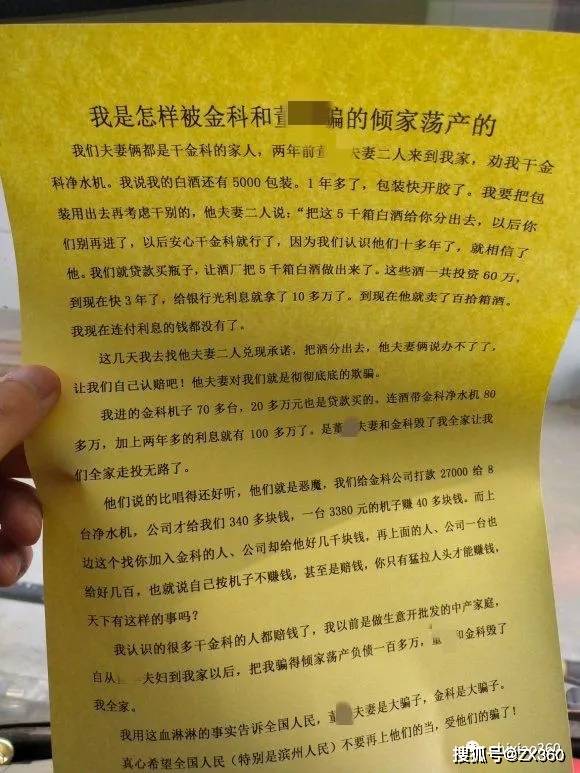 我是怎样被金科和董骗的倾家荡产的
我们夫妻俩都是干金科的家人，两年前董夫妻二人来到我家，劝我干金
科净水机。我说我的白酒还有5000包装。1年多了，包装快开胶了。我要把包
装用出去再考虑干别的，他夫妻二人说：“把这5千箱白酒给你分出去，以后你
们别再进了，以后安心干金科就行了，因为我们认识他们十多年了，就相信了
他。我们就贷款买瓶子，让酒厂把5千箱白酒做出来了。这些酒一共投资60万，
到现在快3年了，给银行光利息就拿了10多万了。到现在他就卖了百拾箱酒。
我现在连付利息的钱都没有了。
这几天我去找他夫妻二人兑现承诺，把酒分出去，他夫妻俩说办不了了，
让我们自己认赔吧！他夫妻对我们就是彻彻底底的欺骗。
我进的金科机子70多台，20多万元也是贷款买的。连酒带金科净水机80
多万，加上两年多的利息就有100多万了。是董夫妻和金科毁了我全家让我
们全家走投无路了。
他们说的比唱得还好听，他们就是恶魔，我们给金科公司打款27000给8
台净水机，公司才给我们340多块钱，一台3380元的机子赚40多块钱。而上
边这个找你加入金科的人、公司却给他好几千块钱，再上面的人、公司一台也
给好几百，也就说自己按机子不赚钱，甚至是赔钱，你只有猛拉人头才能赚钱，
天下有这样的事吗？
我认识的很多干金科的人都赔钱了，我以前是做生意开批发的中产家庭，
自从夫妇到我家以后，把我骗得倾家荡产负债一百多万，董和金科毁了
我全家。
我用这血淋淋的事实告诉全国人民，董夫妻是大骗子，金科是大骗子。
真心希望全国人民（特别是滨州人民）不要再上他们的当，受他们的骗了！
搜狐号@ZX360